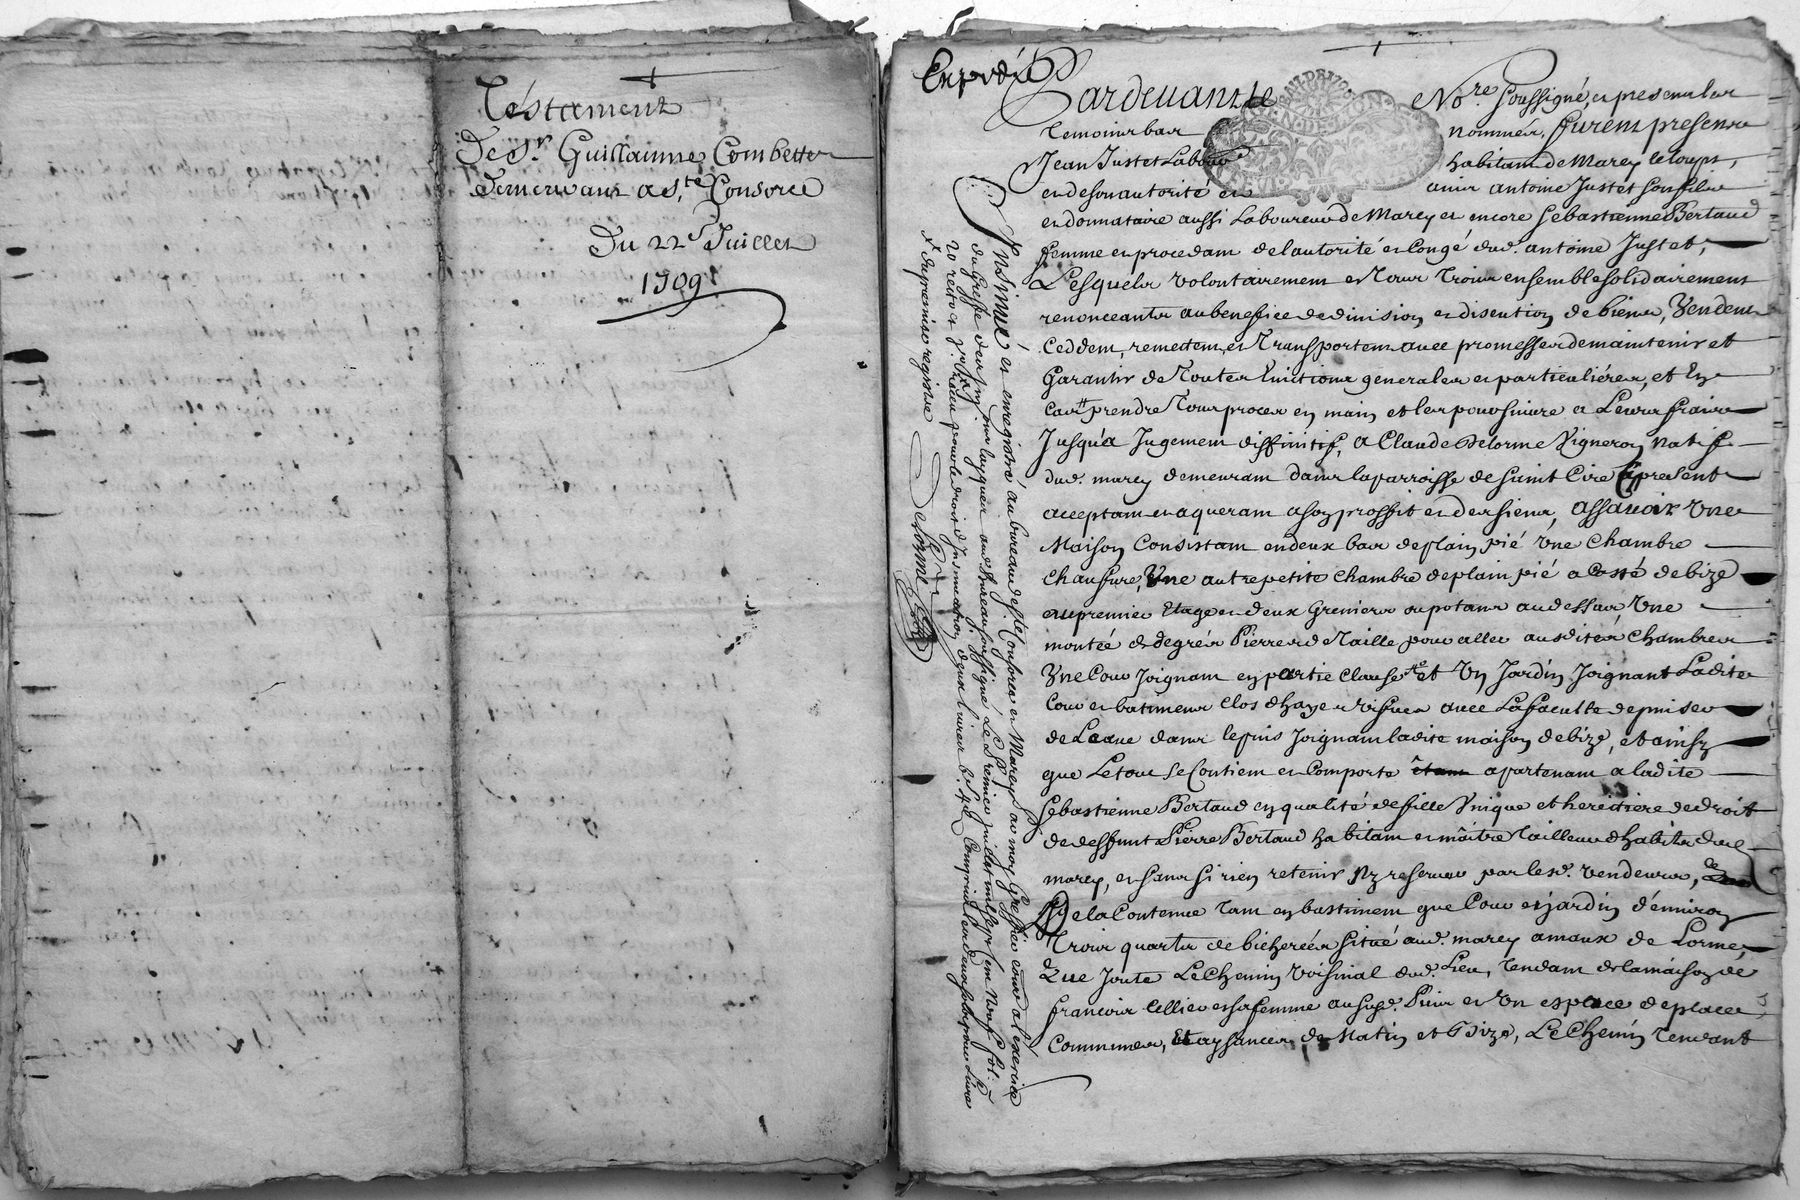 Testament
De Sr. Guillaume Combettes
demeurant a Ste. Consorce
Du 22e Juillet
1709
Expedié
Pardevant le Nore. soussigné, et presens les
temoins bas nommés, furent presens
Jean Justet Labour habitant de Marcy le loups,
et de son autorité et antoine Justet son fils
et donnataire aussi Laboureur de Marcy et encore Sebastienne Bertaud
femme et procedant de l'autorité et Congé dud. antoine Justet,
Lesquels volontairement et Tous Trois ensemble solidairement
renonceants au benefice de division et discution de biens, Vendent
Ceddent, remettent, et Transportent avec promesses de maintenir et
Garantir de Toutes Evictions generales et particuliéres, et En
cas prendre Tous proces en main et les poursuivre a Leurs fraix
Jusqu'a Jugement diffinitif, a Claude Delorme Vigneron natif
dud. marcy demeurant dans la parroisse de saint Cire a present
acceptant et aquerant a son proffit et des siens, assavoir Une
Maison Consistant en deux bas de plain pié Une Chambre
chaufure, Une autre petite chambre de plain pié a costé de bize
au premier Etage et deux Greniers ou potans au dessus Une
montée et degrés Pierre de Taille pour aller ausdites Chambres
Une Cour Joignant en partie Clause et Un Jardin Joignant Ladite
Cour et batiment Clos d'hayes vifves avec La faculté de puiser
de Leaue dans le puis Joignant ladite maison de bize, et ainsy
que Le tout se Contient et Comporte apartenant a ladite
Sebastienne Bertaud en qualité de fille Unique et heritiere de droit
de deffunt Pierre Bertaud habitant et maitre Tailleur d'habits dud.
marcy, et sans si rien retenir Ny reserver par lesd. vendeurs, de
De la Contenue Tant en bastiment que Cour et jardin d'environ
Trois quarts de bicherées situé aud. marcy a maux de Lorme,
Que Joute Le Chemin Voisinal dud. Lieu, Tendant de la maison de
francois Cellier et sa femme au Puis et Un espace de place
Communes, Et aysances de Matin et Bize, Le Chemin Tendant
Insinué et enregistré au bureau de Ste Consorce et Marcy par moy Greffier commis a l'exercice
du Greffe
20 recto et pour le droit d'Insinuation deux livres
Delorme